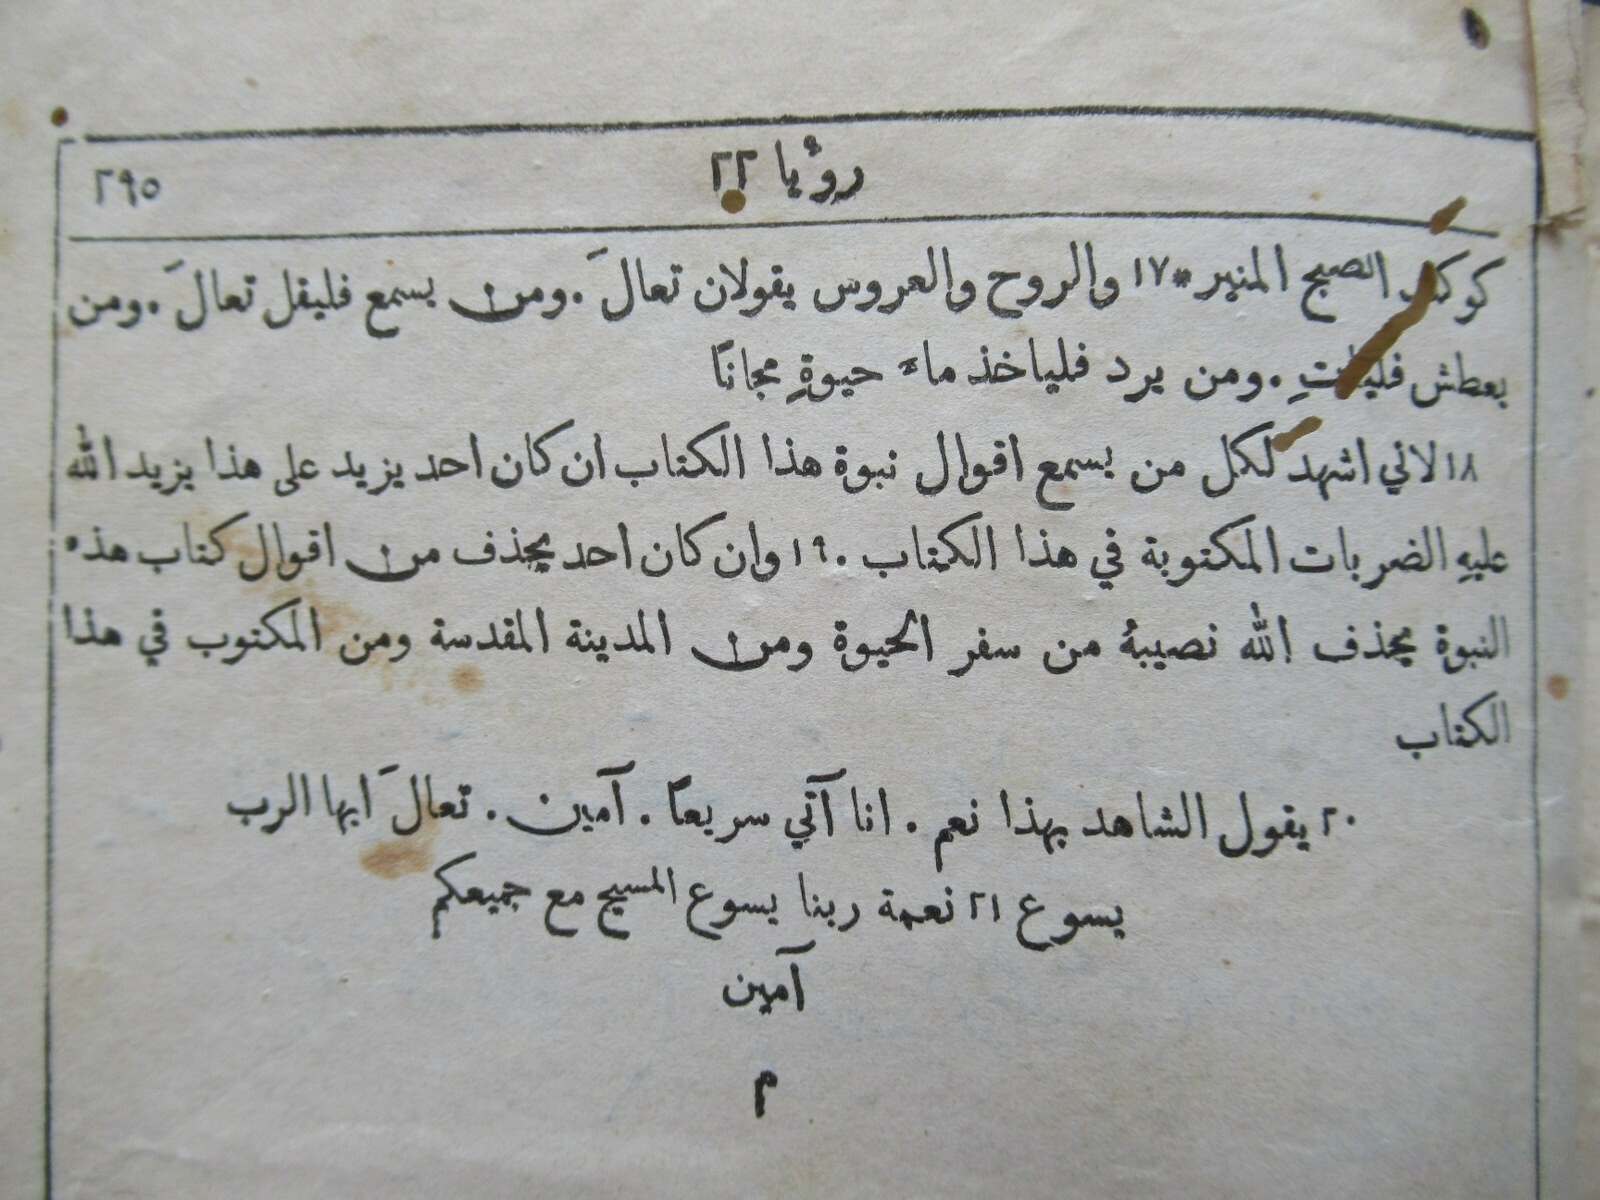 رؤيا ٢٢ ٢٩٥
كوكب الصبح المنير * ١٧ والروح والعروس يقولان تعالَ. ومن يسمع فليقل تعالَ. ومن
يعطش فليأتِ. ومن يرد فلياخذ ماءَ حيوةٍ مجانًا
١٨ لاني اشهد لكل من يسمع اقوال نبوة هذا الكتاب ان كان احد يزيد على هذا يزيد الله
عليهِ الضربات المكتوبة في هذا الكتاب. ١٩ وان كان احد يحذف من اقوال كتاب هذه
النبوة يحذف الله نصيبهُ من سفر الحيوة ومن المدينة المقدسة ومن المكتوب في هذا
الكتاب
٢٠ يقول الشاهد بهذا نعم. انا آتي سريعًا. آمين. تعالَ ايها الرب
يسوع ٢١ نعمة ربنا يسوع المسيح مع جميعكم
آمين
م